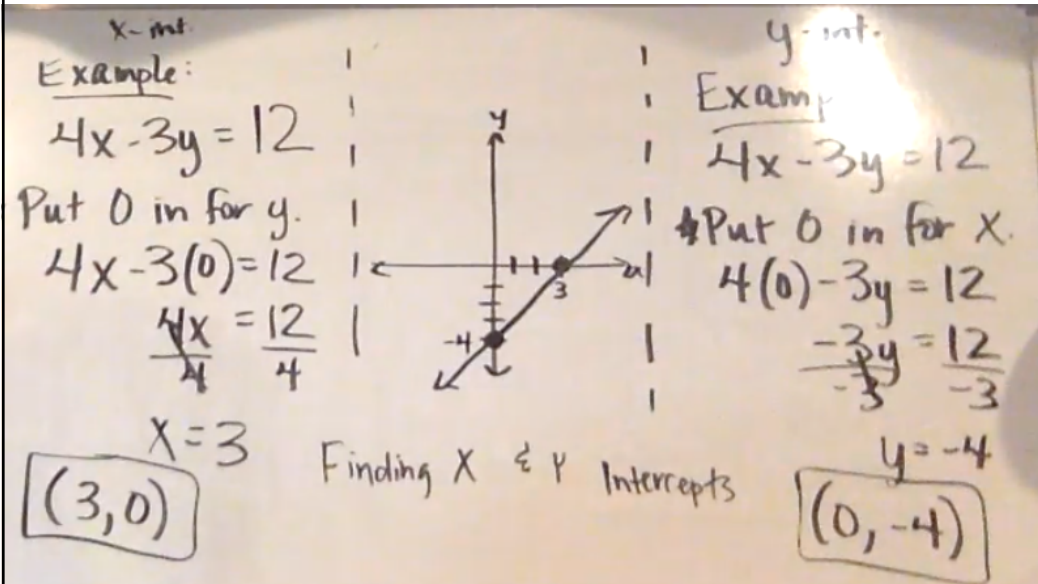 x-int.
Example:
4x-3y=12
Put 0 in for y.
4x-3(0)=12
4x = 12
4 4
x=3
(3,0)
y
3
-4
Finding X & Y Intercepts
y-int.
Examp
4x-3y=12
Put 0 in for x.
4(0)-3y=12
-3y = 12
-3 -3
y=-4
(0,-4)